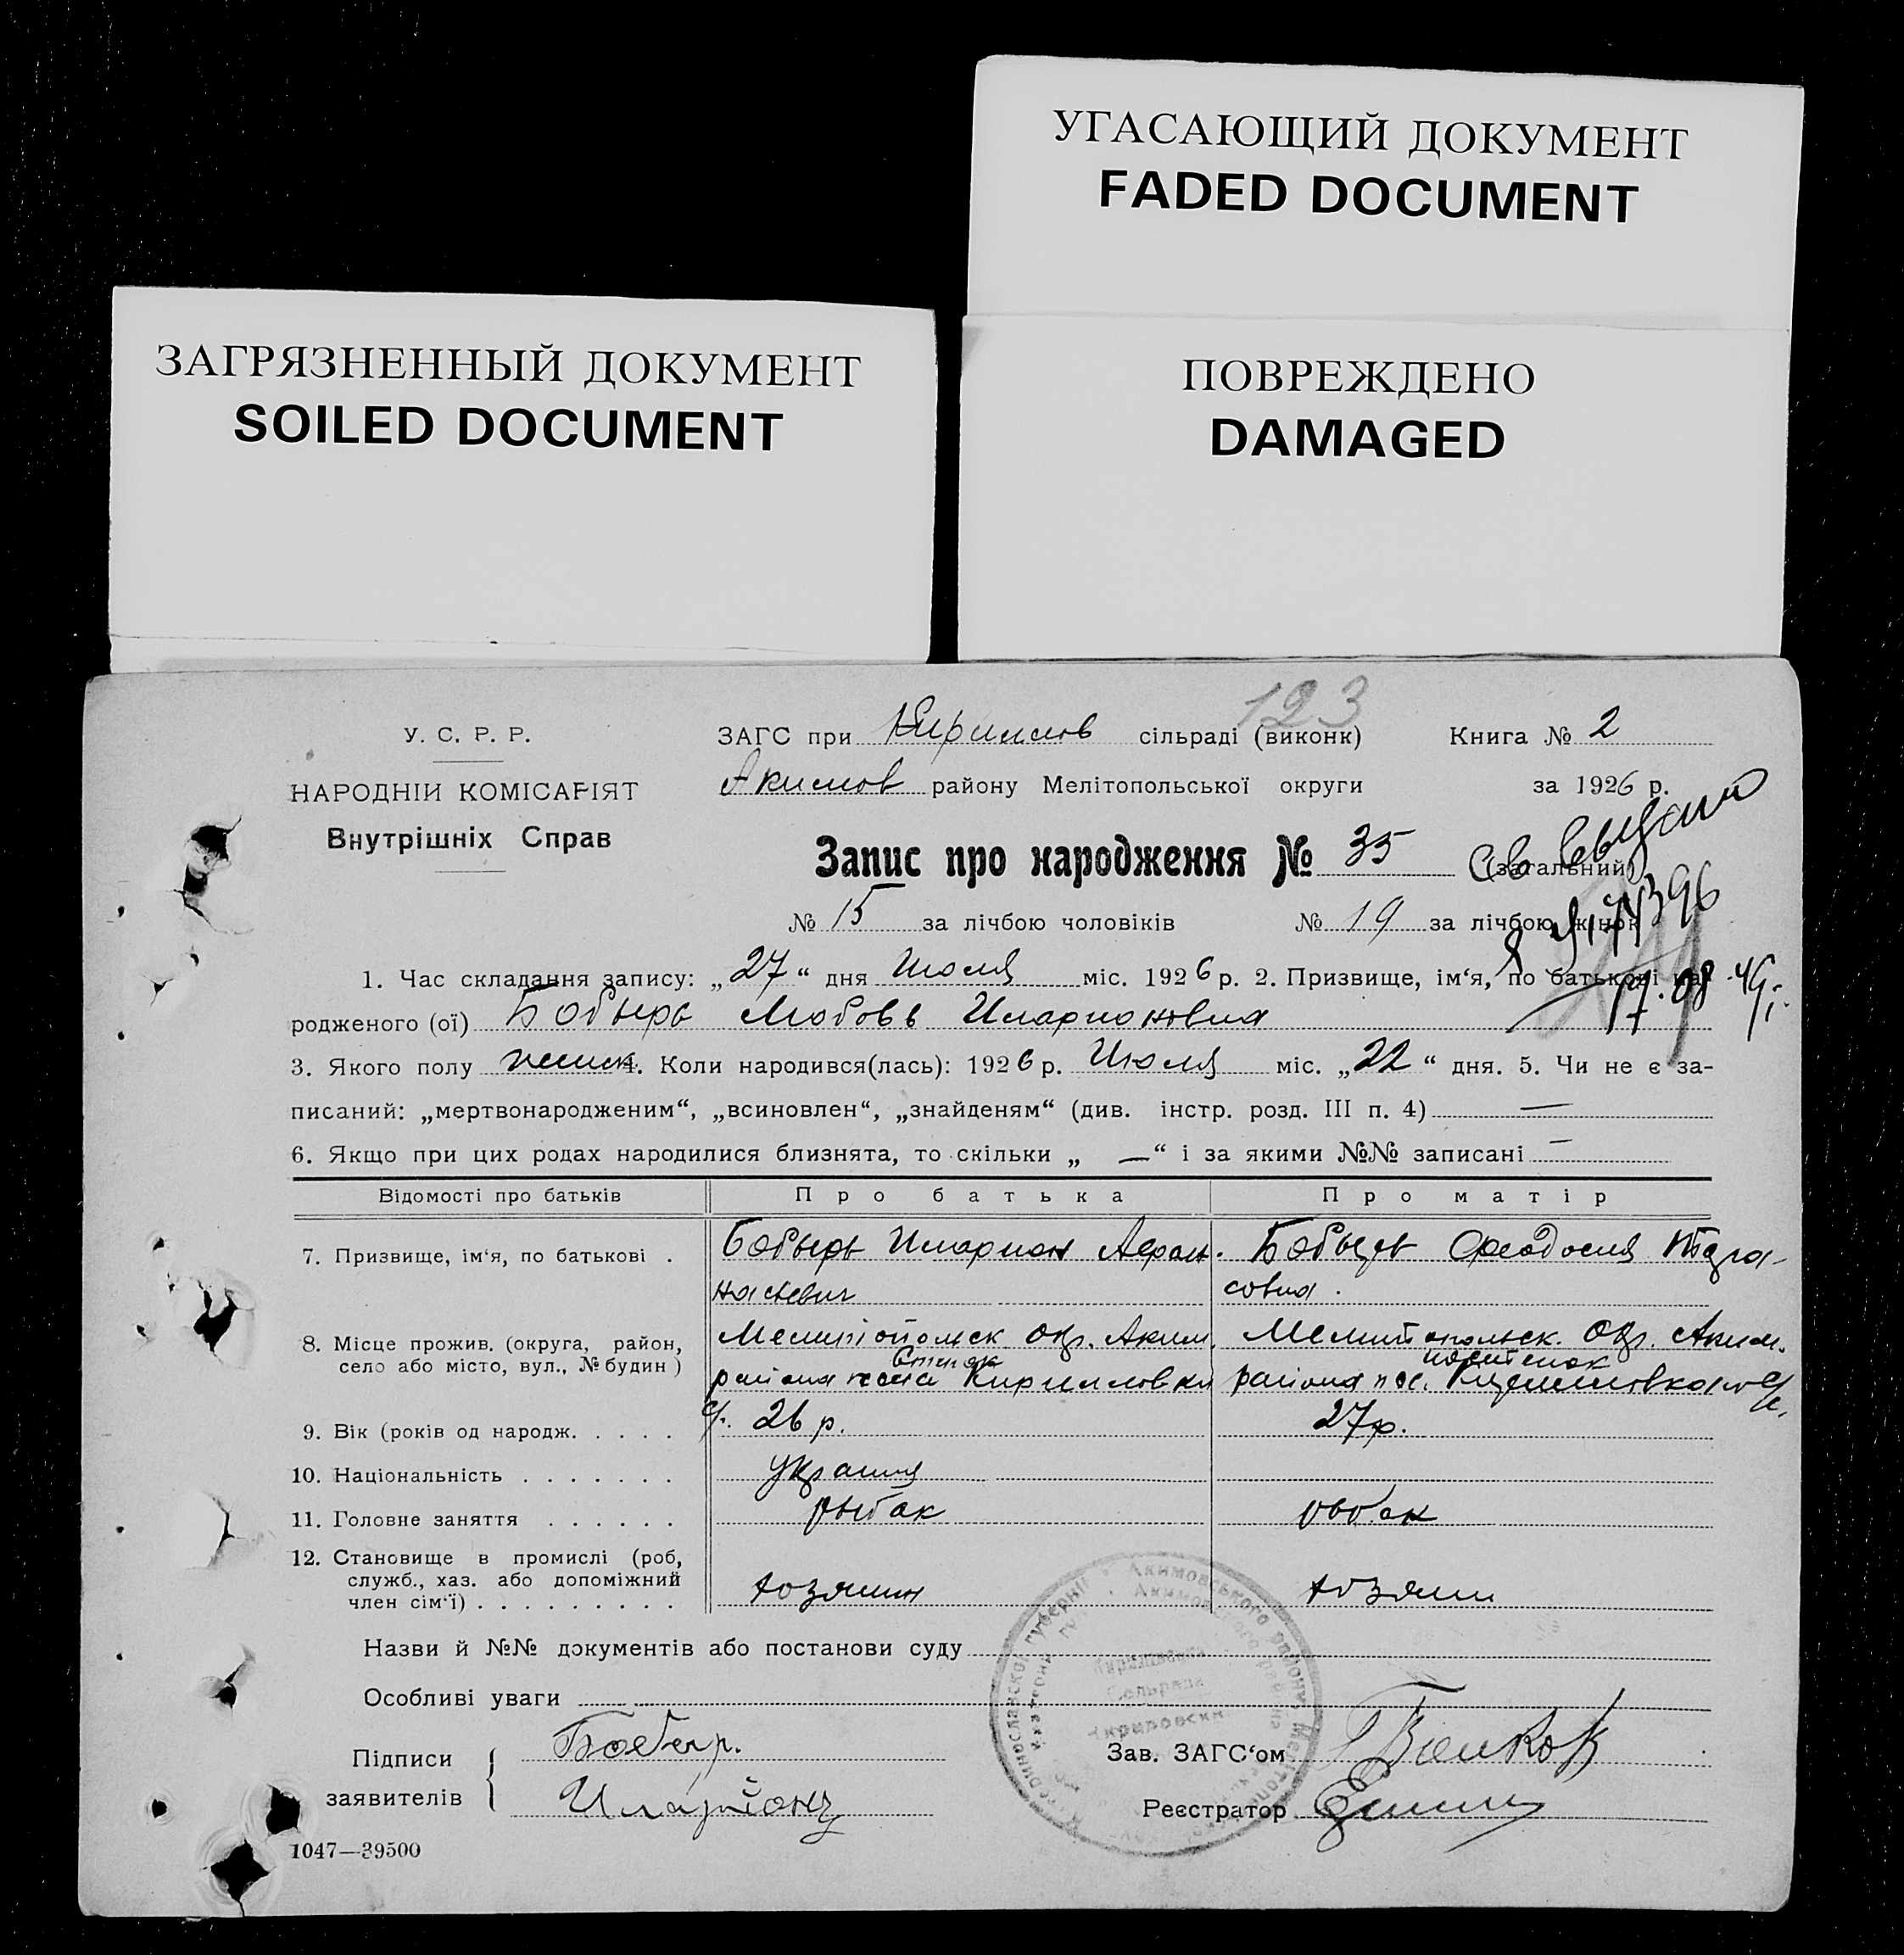 УГАСАЮЩИЙ ДОКУМЕНТ
FADED DOCUMENT
ЗАГРЯЗНЕННЫЙ ДОКУМЕНТ
SOILED DOCUMENT
ПОВРЕЖДЕНО
DAMAGED
123
У. С. Р. Р.
НАРОДНІЙ КОМІСАРІЯТ
Внутрішніх Справ
ЗАГС при Кирилов сільраді (виконк) Книга № 2
Акимов району Мелітопольської округи за 1926 р.
Запис про народження № 35 (загальний)
№ 15 за лічбою чоловіків № 19 за лічбою жінок
1. Час складання запису: „27“ дня Июля міс. 1926 р. 2. Призвище, ім‘я, по батькові на-
17.08.49г.
родженого (ої) Бобырь Любовь Иларионовна
3. Якого полу женск. 4. Коли народився(лась): 1926 р. Июля міс. „22“ дня. 5. Чи не є за-
писаний: „мертвонародженим“, „всиновлен“, „знайденям“ (див. інстр. розд. III п. 4) —
6. Якщо при цих родах народилися близнята, то скільки „ — “ і за якими №№ записані —
Відомості про батьків Про батька Про матір
7. Призвище, ім‘я, по батькові . Бобырь Иларион Афан- Бобырь Феодосия
насиевич совна.
8. Місце прожив. (округа, район, Мелитопольск окр. Аким. Мелитопольск. Окр. Аким.
село або місто, вул., № будин ) района Кирилловки района пос.
9. Вік (років од народж. . . . . 26 р. 27 р.
10. Національність . . . . . . . украинц
11. Головне заняття . . . . . . рыбак рыбак
12. Становище в промислі (роб,
служб., хаз. або допоміжний
член сім‘ї) . . . . . . . . . хозяин хозяин
Назви й №№ документів або постанови суду
Особливі уваги
Підписи Бобыр.
заявителів Иларионъ
Зав. ЗАГС‘ом
Реєстратор
1047—39500